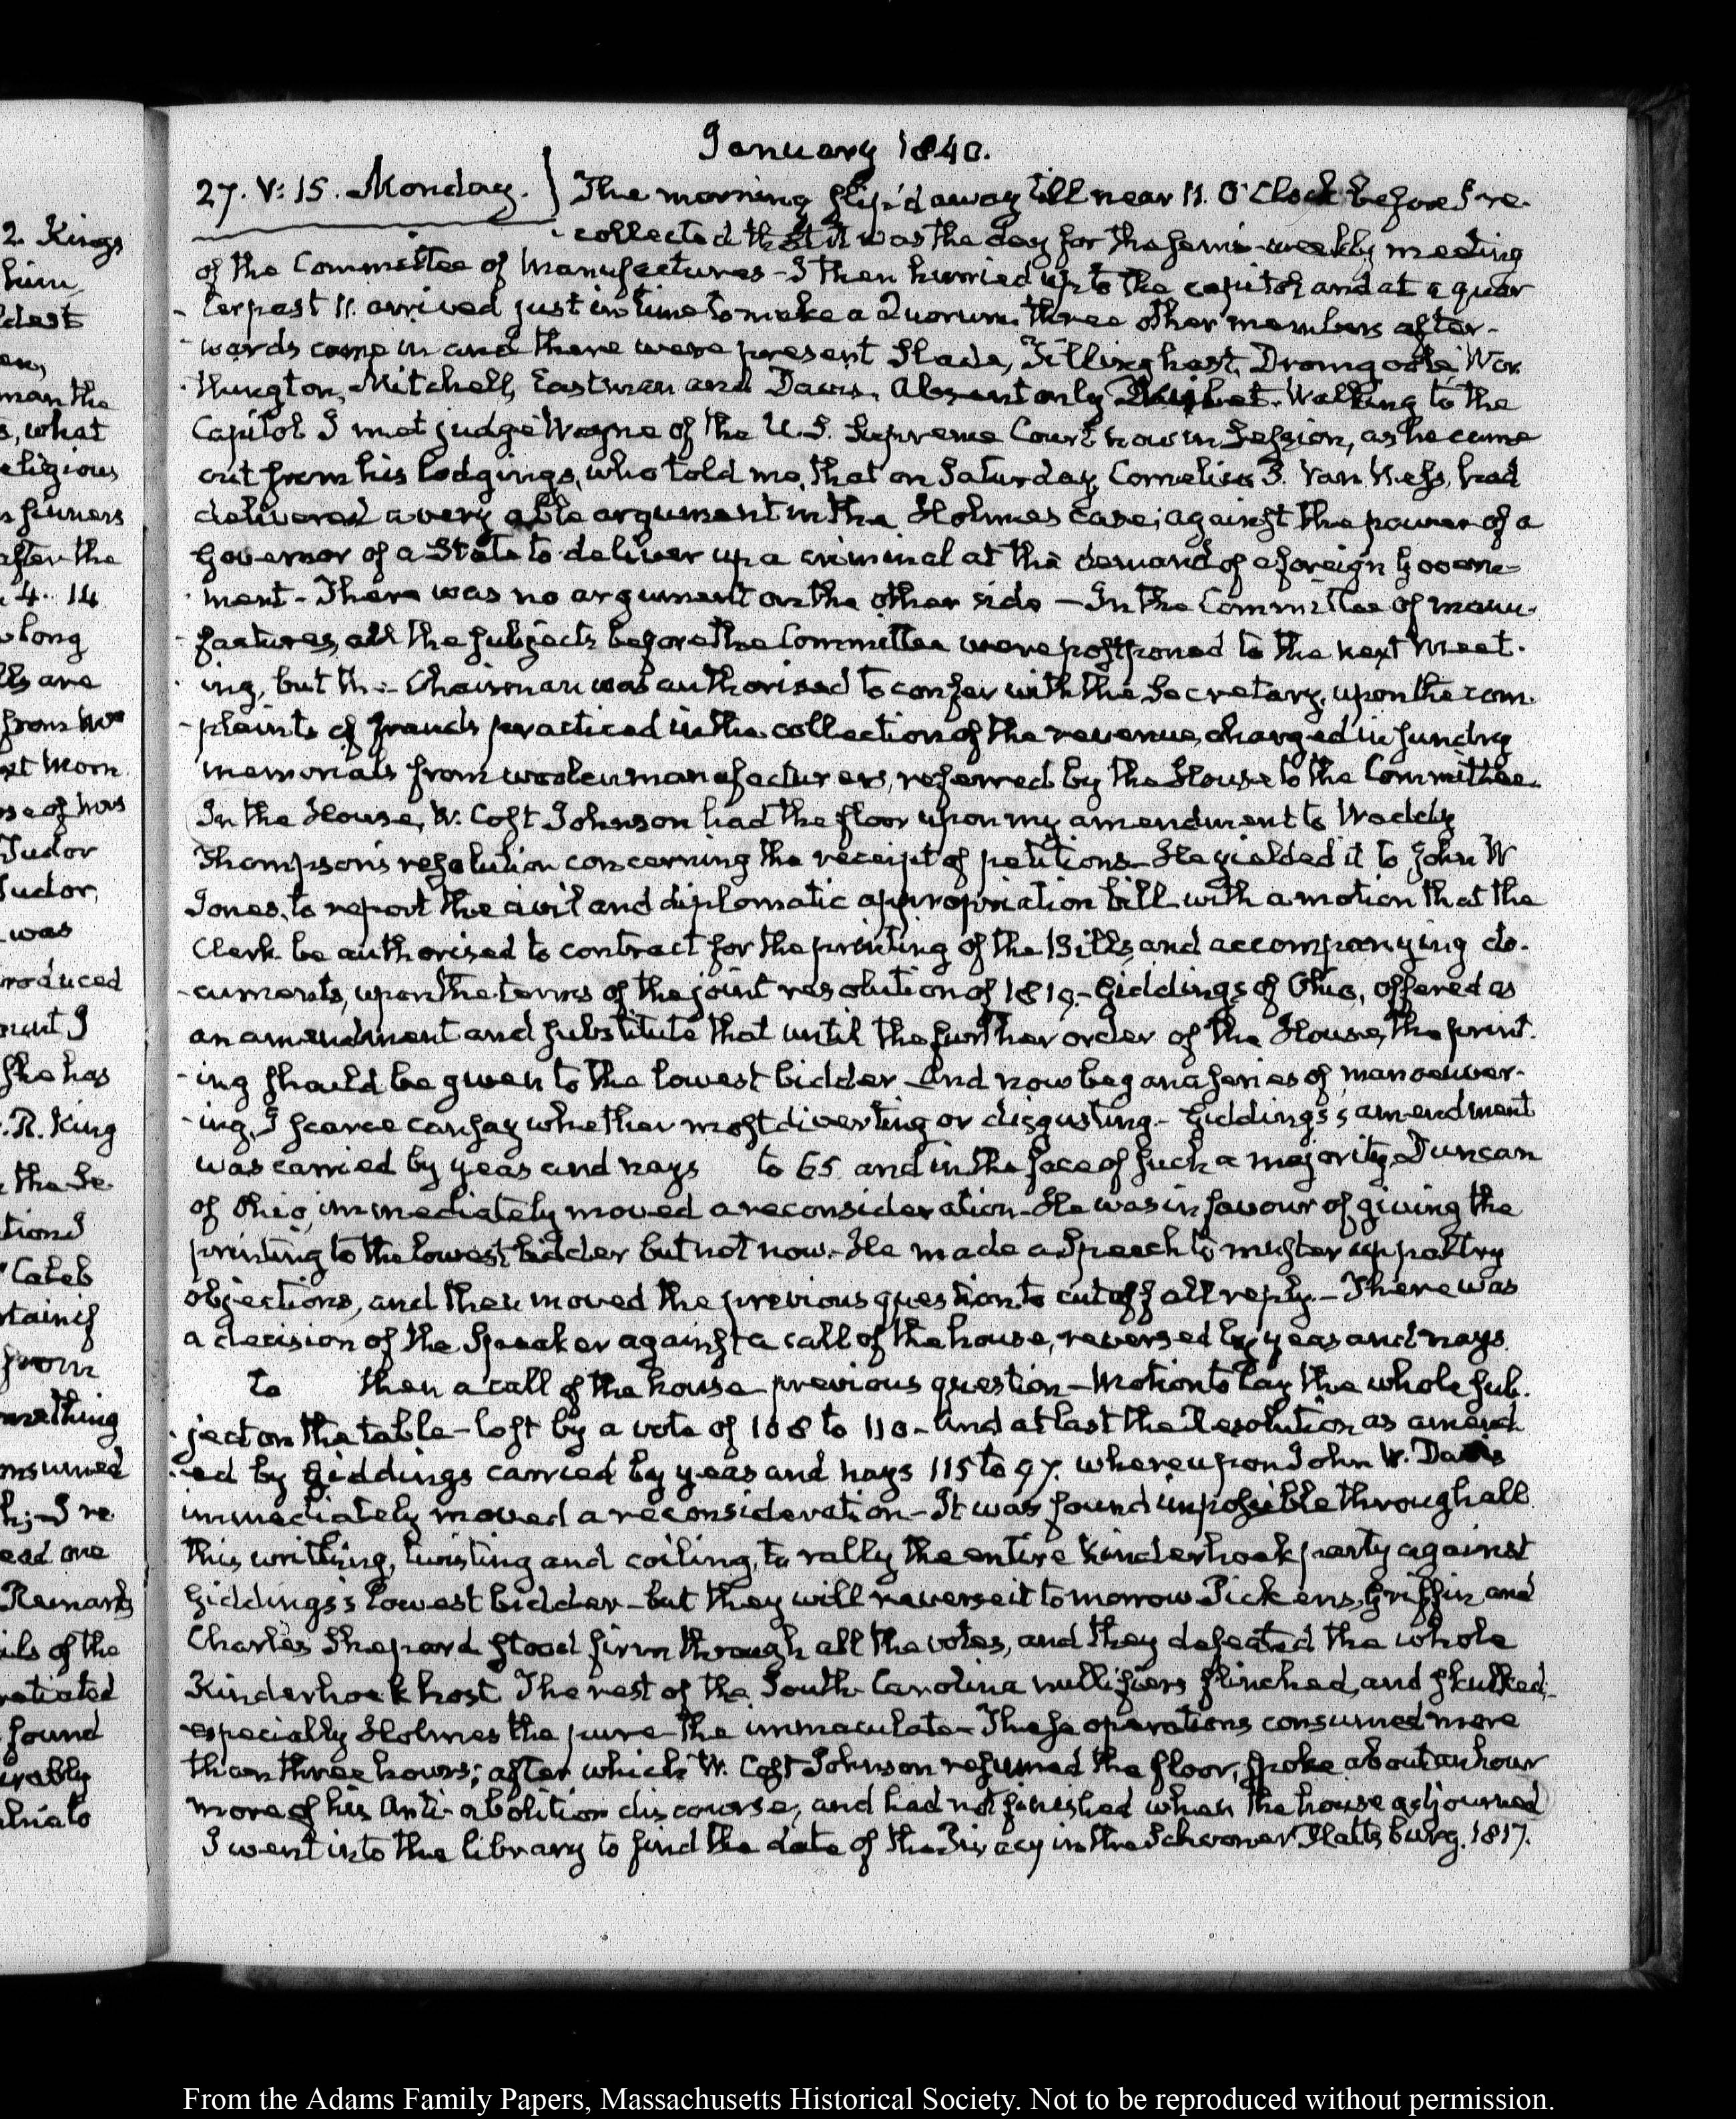 2. Kings
him
dest
en,
man the
s, what
eligious
sinners
after the
4. 14
long
lls are
from Mr
xt morn
se of his
Tudor
Tudor,
was
roduced
ount I
she has
R. King
the Se
tions
Caleb
rtainly
from
mething
onsumed
h;- I re
ead one
Remarks
ils of the
retiated
found
erably
January 1840.
27. V: 15. Monday. } The morning slip'd away till near 11. O'Clock before I re-
collected that it was the day for the semi-weekly meeting
of the Committee of Manufactures - I then hurried up to the capitol and at a quar
-ter past 11. arrived just in time to make a Quorum. three other members after-
-wards came in and there were present Slade, Tillinghast, Dromgoole, Wor
-thington, Mitchell, Eastman and Davis. Absent only Walking to the
Capitol I met judge Wayne of the U.S. Supreme Court now in Session, as he came
out from his lodgings, who told me, that on Saturday, Cornelius P. Van Ness, had
delivered a very able argument in the Holmes case, against the power of a
Governor of a State to deliver up a criminal at the demand of a foreign Govern-
-ment - There was no argument on the other side - In the Committee of manu-
-factures, all the subjects before the Committee were postponed to the next meet-
-ing, but the Chairman was authorised to confer with the Secretary, upon the com-
-plaints of frauds practiced in the collection of the revenue, charged in sundry
memorials from woolen manufacturers, referred by the House to the Committee.
In the House, W. Cost Johnson had the floor upon my amendment to Waddy
Thompson's resolution concerning the receipt of petitions - He yielded it to John W
Jones, to report the civil and diplomatic appropriation bill with a motion that the
Clerk be authorised to contract for the printing of the Bills, and accompanying do-
-cuments, upon the terms of the joint resolution of 1819 - Giddings of Ohio, offered as
an amendment and substitute that until the further order of the House, the print-
-ing should be given to the lowest bidder - And now began a series of manoeuver-
-ing, I scarce can say whether most diverting or disgusting - Giddings's amendment
was carried by yeas and nays to 65 and in the face of such a majority, Duncan
of Ohio, immediately moved a reconsideration - He was in favour of giving the
printing to the lowest bidder but not now - He made a Speech to muster up paltry
objections, and then moved the previous question to cut off all reply. - There was
a decision of the Speaker against a call of the house, reversed by yeas and nays.
to then a call of the house - previous question - Motion to lay the whole sub-
-ject on the table - lost by a vote of 108 to 110 - And at last the Resolution as amend
-ed by Giddings carried by yeas and nays 115 to 97. whereupon John W. Davis
immediately moved a reconsideration - It was found impossible through all
this writhing, twisting and coiling, to rally the entire Kinderhook party against
Giddings's lowest bidder - but they will reverse it to morrow Pickens, Griffin and
Charles Shepard stood firm through all the votes, and they defeated the whole
Kinderhook host The rest of the South-Carolina nullifiers flinched, and skulked,-
especially Holmes the pure - the immaculate - These operations consumed more
than three hours; after which W. Cost Johnson resumed the floor, spoke about an hour
more of his Anti-abolition discourse, and had not finished when the house adjourned
I went into the library to find the date of the Piracy in the Schooner Plattsburg. 1817.
From the Adams Family Papers, Massachusetts Historical Society. Not to be reproduced without permission.